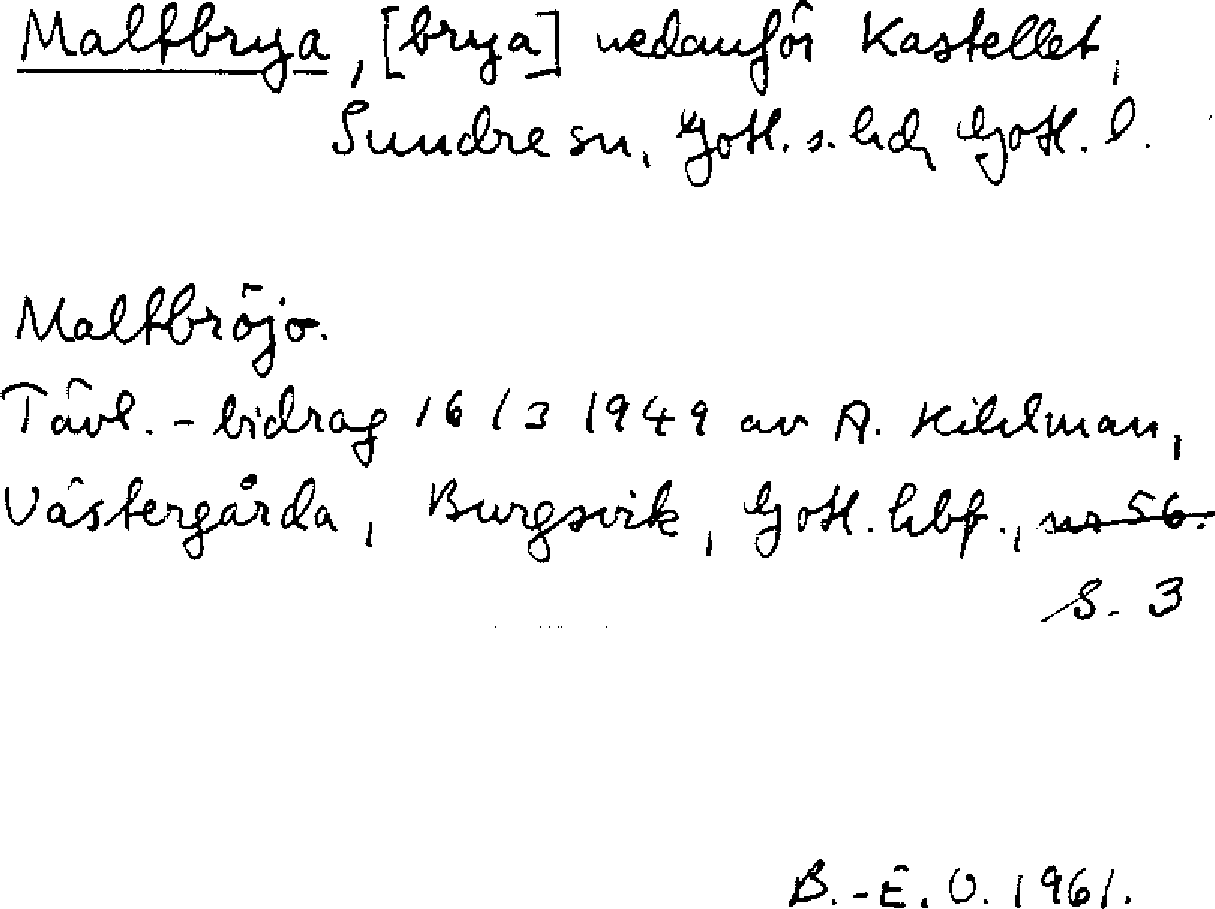 Maltbrya, [brya] nedanför Kastellet,
Sundre sn, Gotl. s. hd, Gotl. l.
Maltbröjo.
Tävl.-bidrag 16/3 1949 av A. Kihlman,
Västergårda, Burgsvik, Gotl. hbf., nr 56.
S. 3
B.-E. O. 1961.